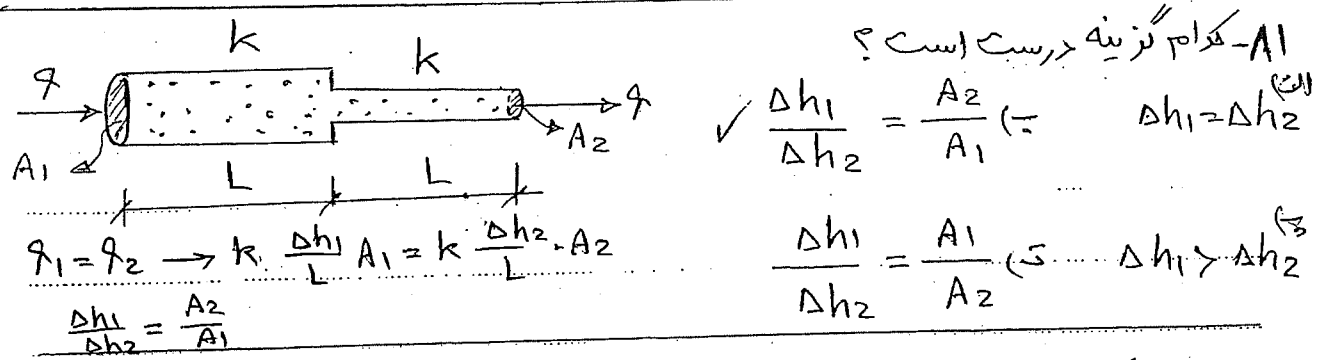 ۸۱- کدام گزینه درست است؟
الف) Δh1 = Δh2
ب) Δh1/Δh2 = A2/A1 ✓
ج) Δh1 > Δh2
د) Δh1/Δh2 = A1/A2
k k
q q
A1 A2
L L
q1 = q2 → k. Δh1/L A1 = k Δh2/L . A2
Δh1/Δh2 = A2/A1